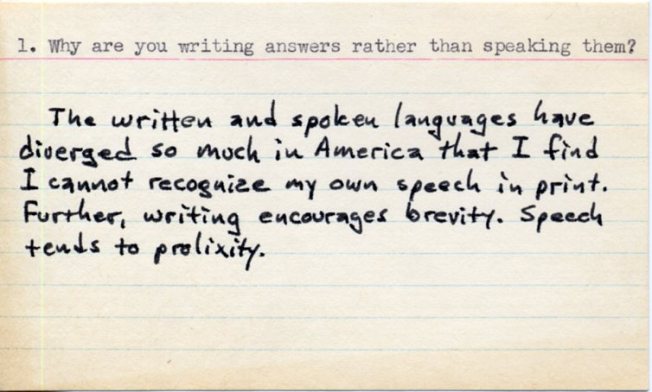 1. Why are you writing answers rather than speaking them?
The written and spoken languages have
diverged so much in America that I find
I cannot recognize my own speech in print.
Further, writing encourages brevity. Speech
tends to prolixity.